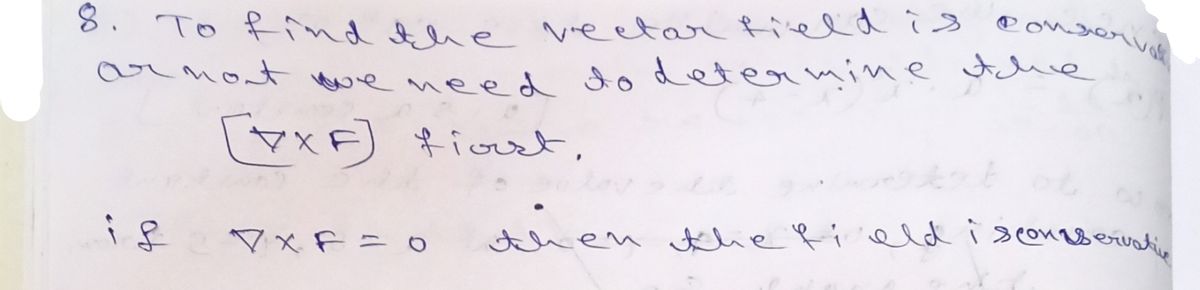 8. To find the vector field is conservat
or not we need to determine the
[∇×F] first.
if ∇×F=0 then the field is conservative